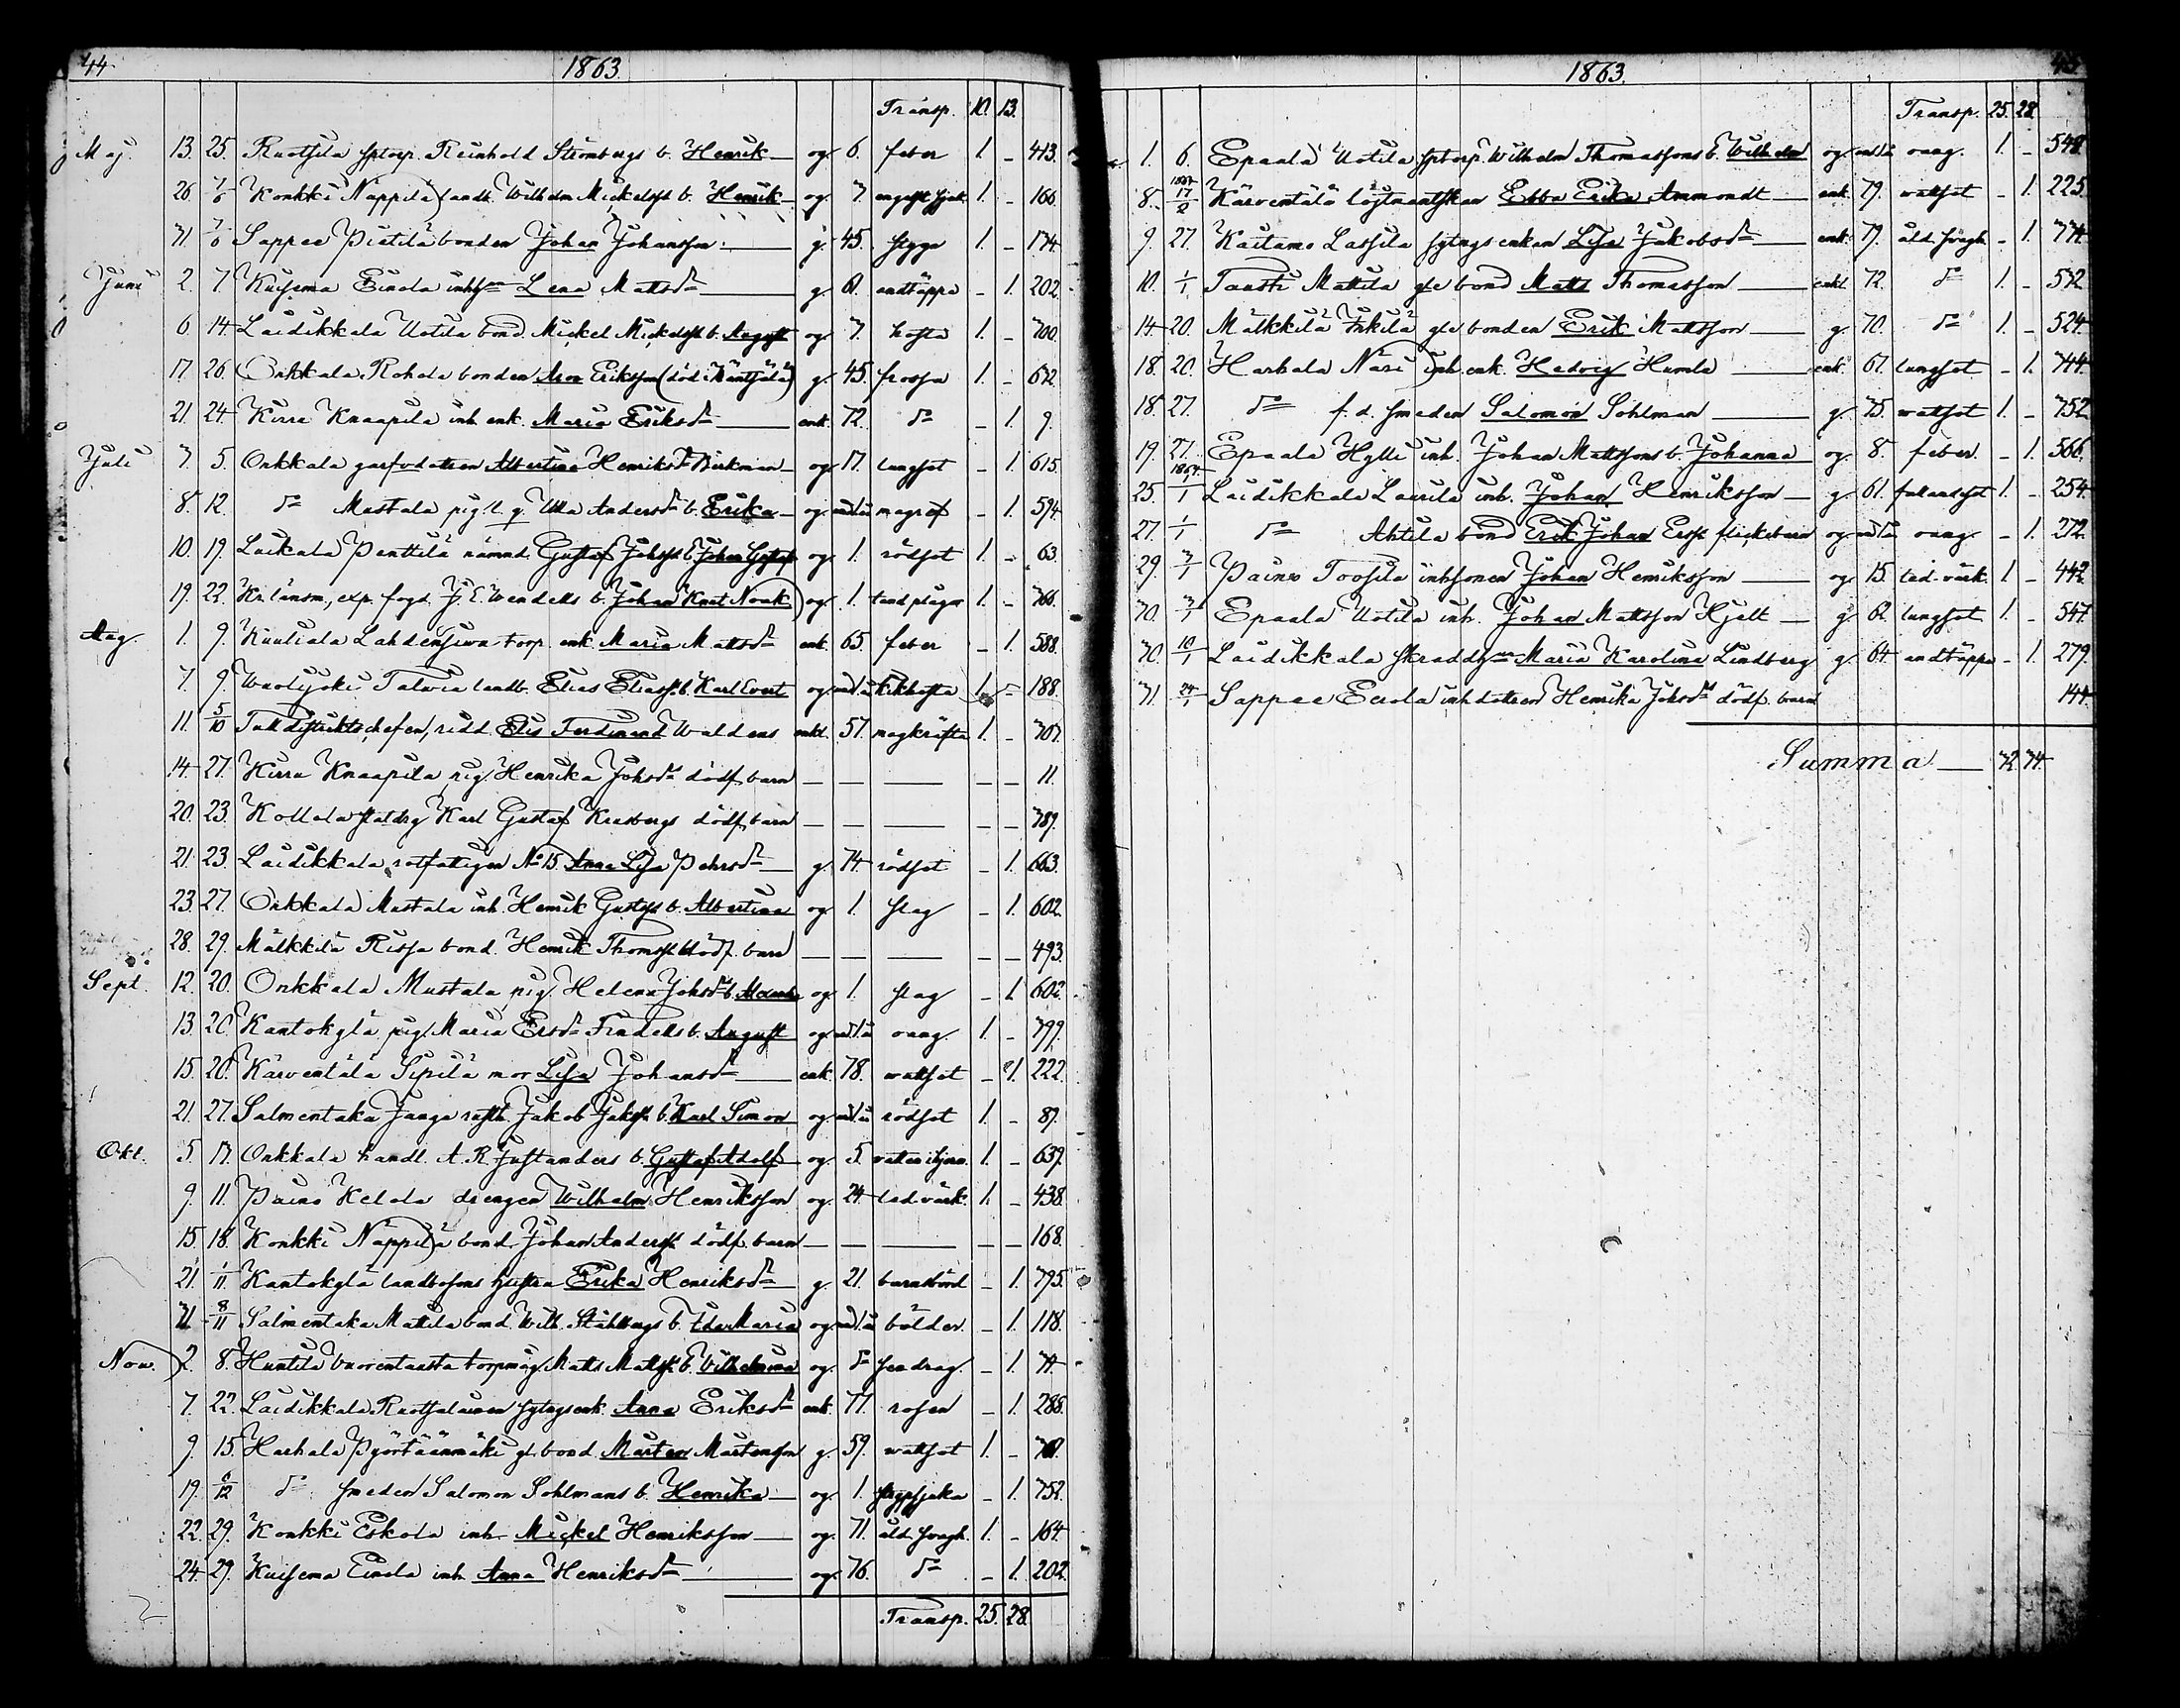 44. 1863.
Transp. 10. 13.
Maj. 13. 25. Ruotsila sptorp. Reinhold Strömbergs b. Henrik og. 6. feber 1. – 413.
26. 7/6 Konkki Näppilä landb. Wilhelm Mickelss b. Henrik og. 7. 1. – 166.
31. 7/6 Sappee Pietilä bonden Johan Johansson g. 45. stygn 1. – 174.
Juni 2. 7. Kuisema Einola inhs Lena Mattsdr g. 61. andtäppa – 1. 202.
6. 14. Laidikkala Uotila bond. Mickel Mickelss b. August og. 7. hosta 1. – 300.
17. 26. Onkkala Rohola bonden Aron Eriksson (död i Mäntsälä) g. 45. frossa 1. – 632.
21. 24. Kirra Knaapila inh. enk. Maria Eriksdr enk. 72. do – 1. 9.
Juli 3. 5. Onkkala garfvodottren Albertina Henriksdr Birkman og. 17. lungsot – 1. 615.
8. 12. do Mustala pig. Ulla Andersdr b. Erika og. – 1. 594.
10. 19. Laikala Penttilä nämnd. Gustaf Johss b. Johan Gustaf og. 1. rödsot 1. – 63.
19. 22. Kr. länsm., exp. fogd. J. E. Wendells b. Johan Knut Noak og. 1. tand plågor 1. – 366.
Aug. 1. 9. Kuuliala Lahdensivu torp. enk. Maria Mattsdr enk. 65. feber – 1. 588.
7. 9. Talvia landb. Elias Eliass. b. Karl Evert og. kikhosta 1. – 188.
11. 5/10 distriktschefen, ridd. Elis Ferdinand Waldens enkl. 57. magkräfta 1. – 307.
14. 27. Kirra Knaapila pig. Henrika Johsdr dödf. barn – – – – – 11.
20. 23. Kollola statdrg Karl Gustaf dödf. barn – – – – – 389.
21. 23. Laidikkala rotfattigen No 15 Anna Lisa Pehrsdr g. 74. rödsot – 1. 663.
23. 27. Onkkala Mustala inh. Henrik Gustss b. Albertina og. 1. slag – 1. 602.
28. 29. Mälkkilä Rissa bond. Henrik Thomss dödf. barn – – – – – 493.
Sept. 12. 20. Onkkala Mustala pig. Helena Johsdr b. og. 1. slag – 1. 602.
13. 20. Kantokylä pig. Maria Ersdr Findells b. August og. oang. 1. – 399.
15. 20. Kärventälä Sipilä mor Lisa Johansdr enk. 78. wattsot – 1. 222.
21. 27. Salmentaka Jaaga Jakob Jakss b. Karl Simon og. rödsot 1. – 87.
Okt. 5. 17. Onkkala handl. A. R. Justanders b. Gustaf Adolf og. 5. vatten i hjern. 1. – 639.
9. 11. Paino Kelola drengen Wilhelm Henriksson og. 24. led-värk. 1. – 438.
15. 18. Konkki Näppilä bond. Johan Anderss dödf. barn – – – – – 168.
21. 1/11 Kantokylä landbosons hustru Erika Henriksdr g. 21. barnsbörd – 1. 395.
31. 8/11 Salmentaka Mattila bond. Wilh. Ståhlbergs b. Eda Maria og. bölder – 1. 118.
Nov. 2. 8. Huntila Vuorentausta torpmåg. Matts Mattss. b. Wilhelmina og. do – 1.
7. 22. Laidikkala Ruotsalainen sytngsenk. Anna Eriksdr enk. 77. rosen – 1. 288.
9. 15. Harhala Pyörtäänmäki gl. bond. Mårten Mårtensson g. 59. wattsot 1. –
19. 6/12 do smeden Salomon Sohlmans b. Henrika og. 1. strypsjuka – 1. 752.
22. 29. Konkki Eskola inh. Mickel Henriksson og. 71. åld. svagh. 1. – 164.
24. 29. Kuisema Einola inh. Anna Henriksdr og. 76. do – 1. 202.
Transp. 25. 28.
1863. 45
Transp. 25. 28.
1. 6. Epaala Uotila sptorp. Wilhelm Thomassons b. Wilhelm og. oang. 1. – 548.
8. 17/2 Kärventälä löjtnantskan Ebba Erika Ammondt enk. 79. wattsot – 1. 225.
9. 27. Kaitamo Lassila sytngs enkan Lisa Jakobsdr enk. 79. åld. svagh. – 1. 374.
10. 1/1 Tausti Mattila gle bond Matts Thomasson enkl. 72. do 1. – 572.
14. 20. Mälkkilä Inkilä gle bonden Erik Mattsson g. 70. do 1. – 524.
18. 20. Harhala Nari inh. enk. Hedvig Humla enk. 67. lungsot – 1. 744.
18. 27. do f. d. smeden Salomon Sohlman g. 75. wattsot 1. – 752.
19. 27. Epaala Hylli inh. Johan Mattssons b. Johanna og. 8. feber – 1. 566.
25. 1864 1/1 Laidikkala Laurila inh. Johan Henriksson g. 61. fallandesot 1. – 254.
27. 1/1 do Ahtila bond Erik Johan Erss flickebarn og. oang. – 1. 272.
29. 3/1 Paino Toosila inhsonen Johan Henriksson og. 15. led-värk. 1 – 442.
30. 3/1 Epaala Uotila inh. Johan Mattsson Hjelt g. 62. lungsot 1. – 547.
30. 10/1 Laidikkala Maria Karolina Lindberg g. 64. andtäppa – 1. 279.
31. 24/1 Sappee Eerola inh dottren Henrika Johsdr dödf. barn 144.
Summa 32. 34.